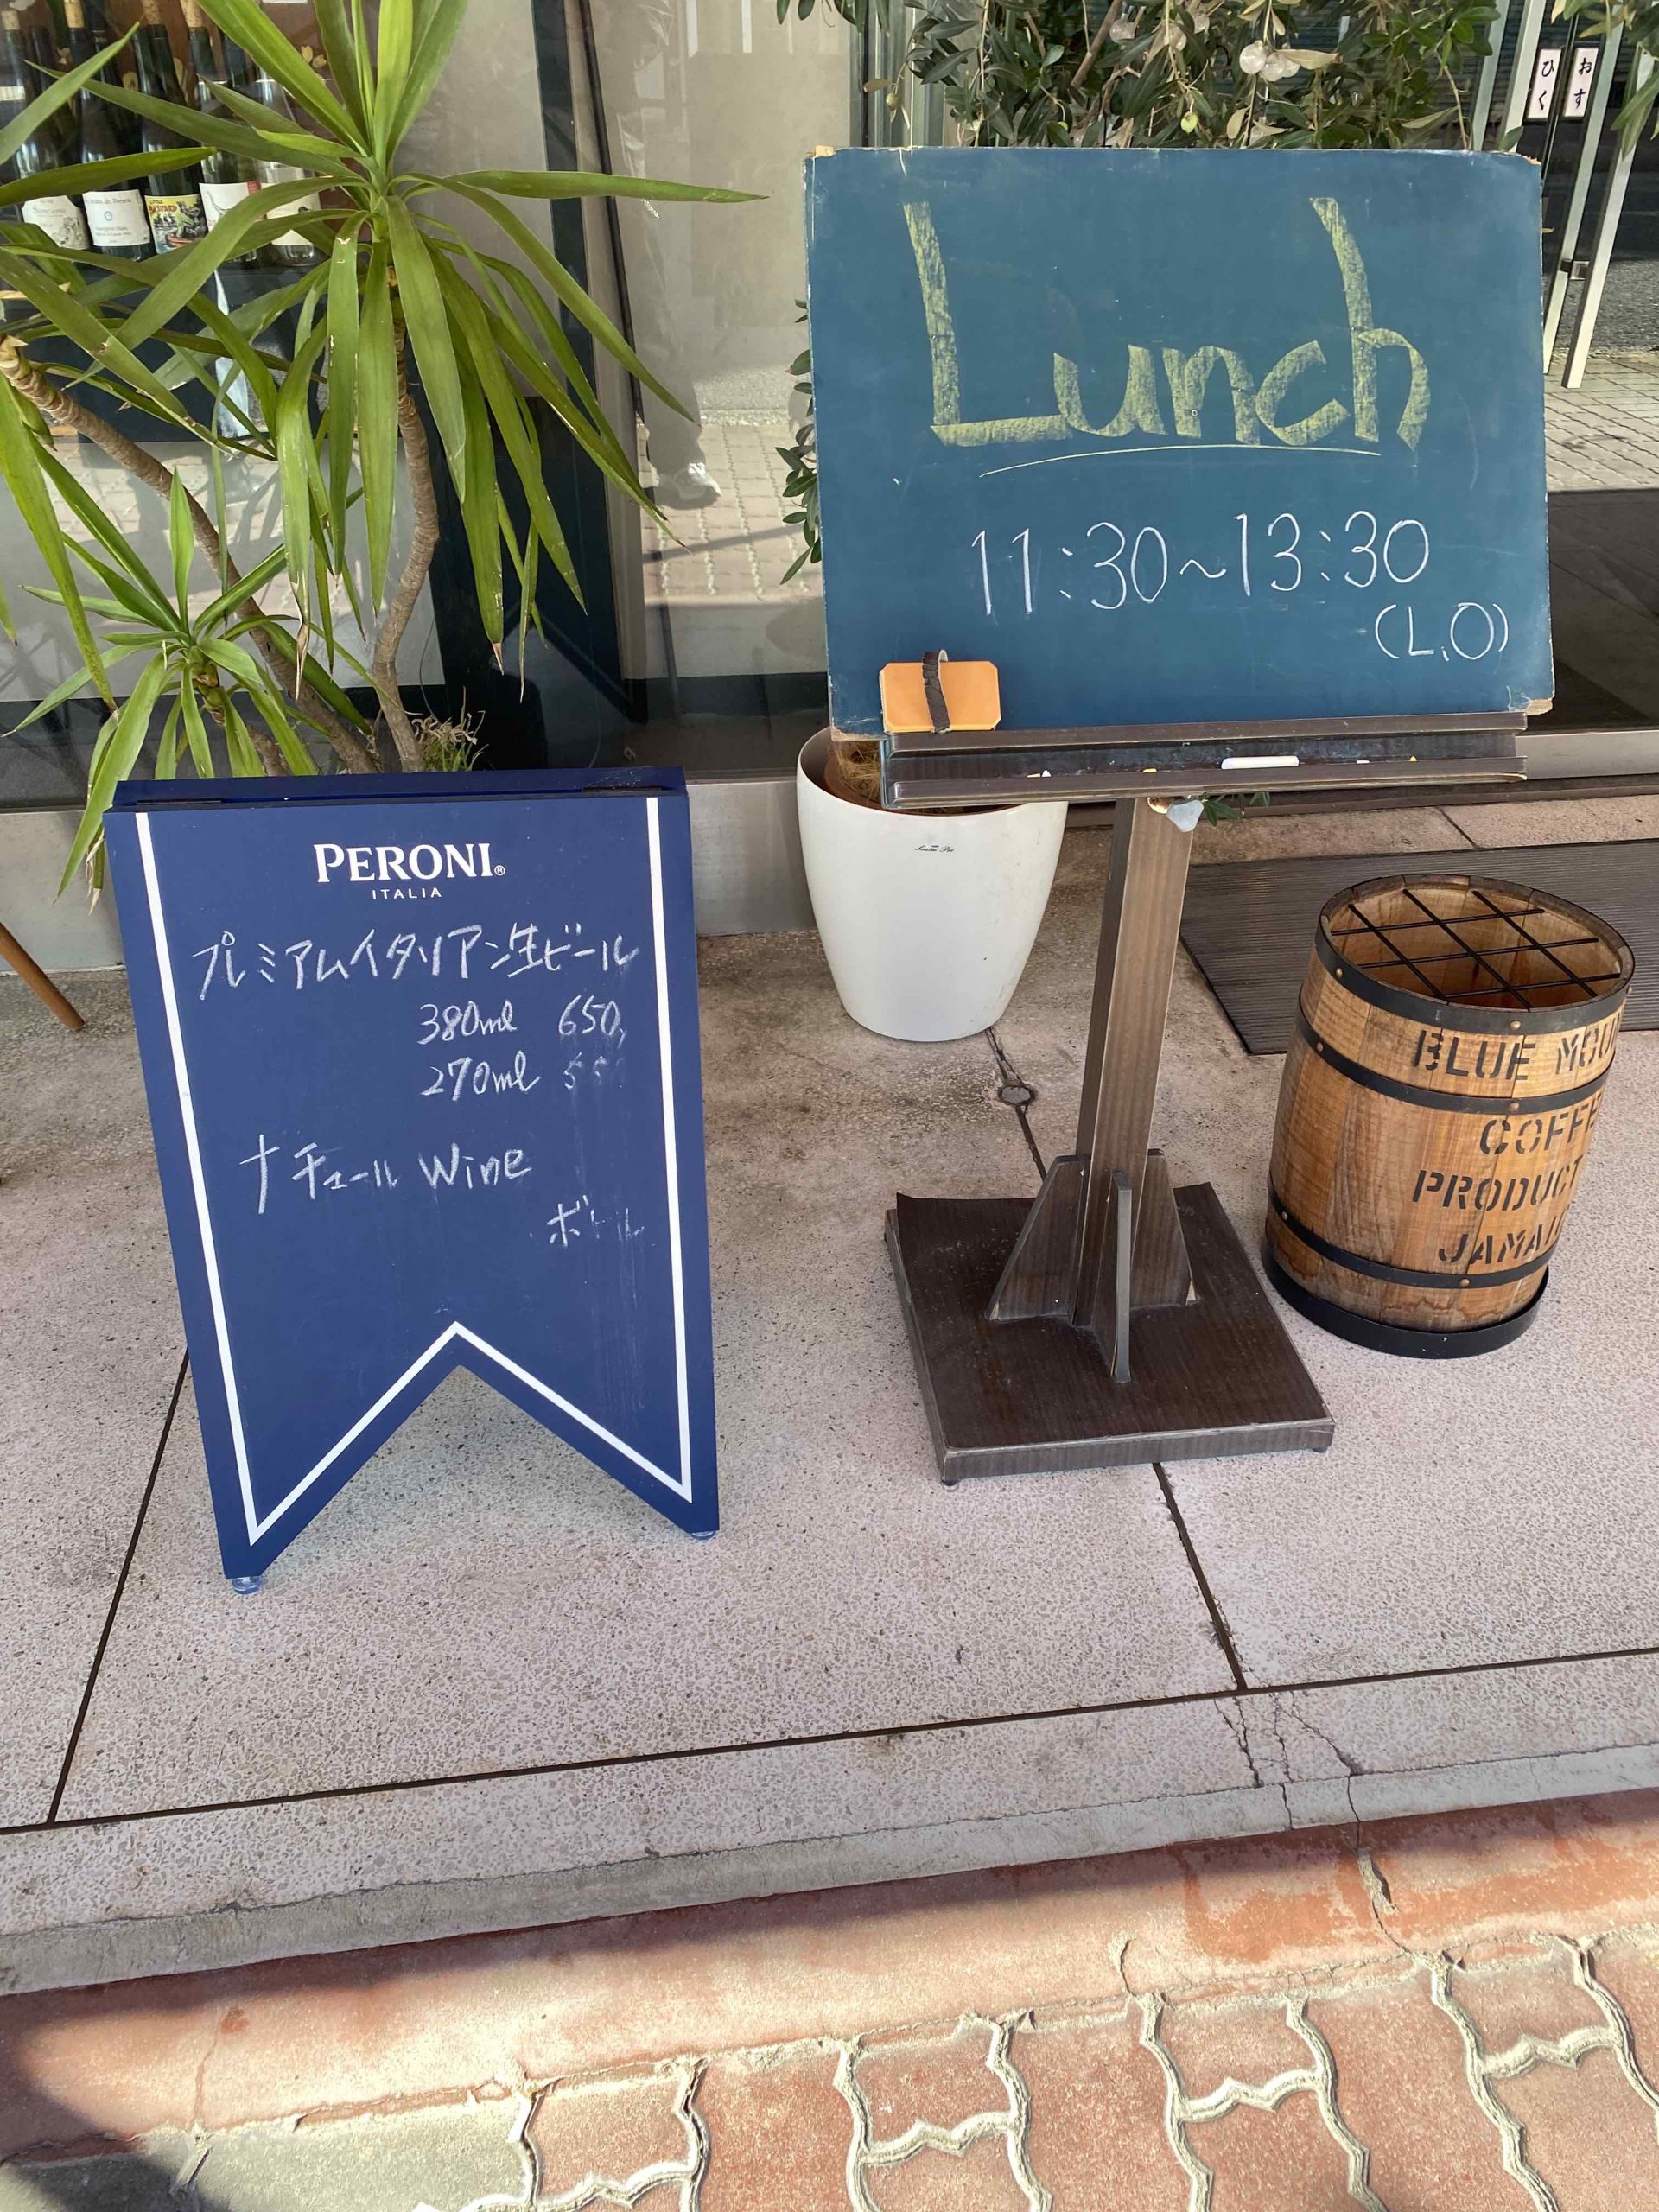 PERONI®
ITALIA
プレミアムイタリアン生ビール
380ml 650,
270ml
ナチュール Wine
ボトル
Lunch
11:30~13:30
(L.O)
BLUE
COFFE
PRODUCT
JAMAI
ひく
おす